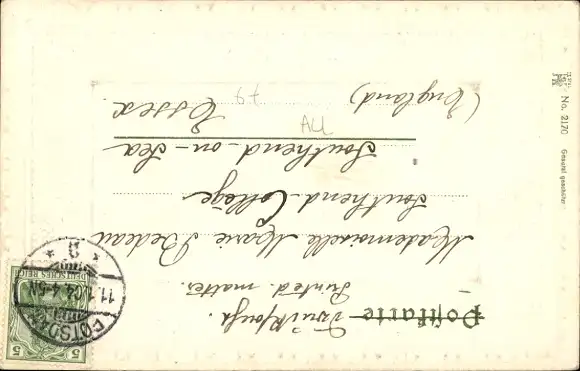 Postkarte
Drucksache.
Printed matter.
Mademoiselle Marie Bedeau
Southend College
Southend-on-Sea
Essex
(England)
AU
67
POTSDAM
11.1.04.4-5N
* D *
DEUTSCHES REICH
5 5
No. 2170
Gesetzl geschützt